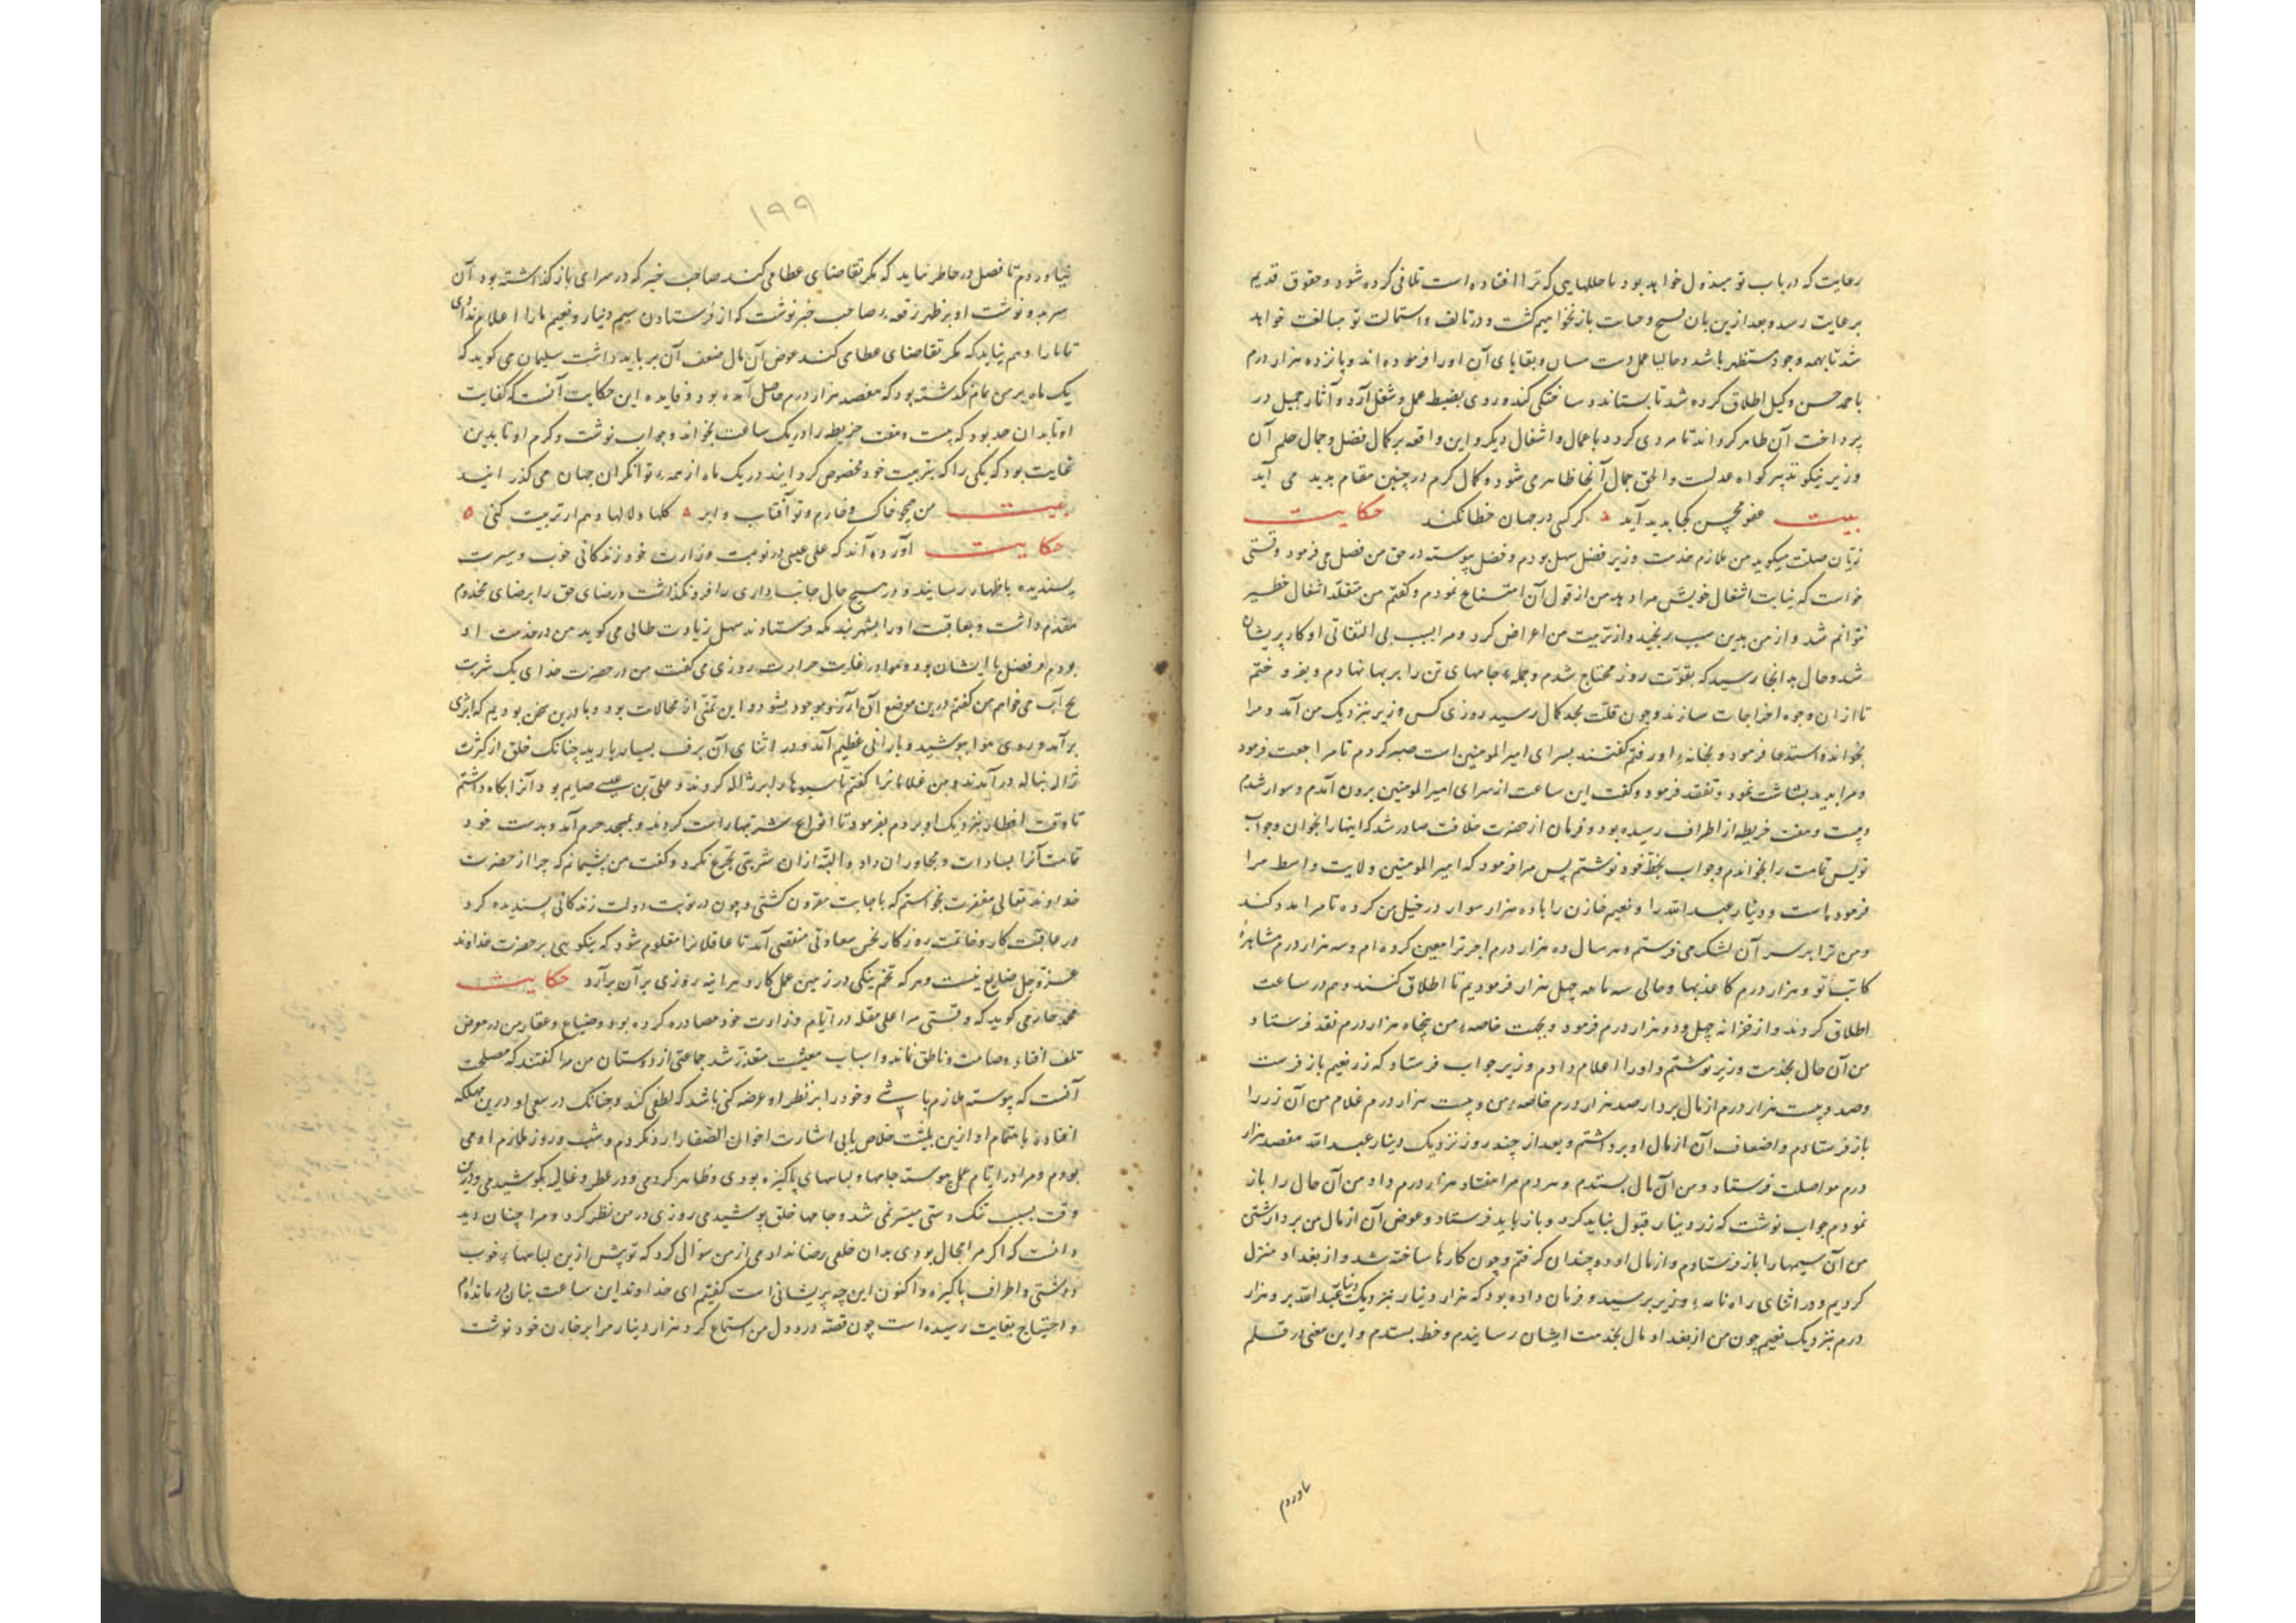 رعایت که در باب تو مبذول خواهد بود تا خللهایی که ترا افتاده است تلافی کرده شود و حقوق قدیم
برعایت رسد و بعد ازین بان نسخ و حیات باز نخواهیم گشت و در تالف و استمالت تو مبالغت خواهد
شد تا بهمه وجوه مستظهر باشد و حالیا عمل دست میسان و بقایای آن اورا فرموده اند و پانزده هزار درم
باحمد حسن وکیل اطلاق کرده شد تا بستاند و ساختگی کند و روی بضبط عمل و شغل آرد و آثار جمیل در
پرداخت آن ظاهر کرداند تا مردی کردد باعمال و اشغال دیگر و این واقعه بر کمال فضل و جمال حلم آن
وزیر نیکو تدبیر کواه عدلست و الحق جمال آنجا ظاهر می شود و کمال کرم در چنین مقام پدید می آید
بیت عفو محسن کجا پدید آید کر کسی در جهان خطا نکند حکایت
زیان صلت میکوید من ملازم خدمت وزیر فضل سهل بودم و فضل پیوسته در حق من فضل می فرمود وقتی
خواست که نیابت اشغال خویش مرا دهد من از قبول آن امتناع نمودم و گفتم من متقلد اشغال خطیر
نتوانم شد و از من بدین سبب برنجید و از تربیت من اعراض کرد و مرا بسبب بی التفاتی او کار پریشان
شد و حال بدانجا رسید که بقوت روز محتاج شدم و جمله جامهای تن را بر بها نهادم و بفروختم
تا از ان وجوه اخراجات سازند و چون قلت بحد کمال رسید روزی کس وزیر نزدیک من آمد و مرا
بخواند و استدعا فرمود و بخانه او رفتم گفتند بسرای امیر المومنین است صبر کردم تا مراجعت فرمود
و مرا بدید بشاشت نمود و تفقد فرمود و گفت این ساعت از سرای امیر المومنین برون آمدم و سوار شدم
و بیست و هفت خریطه از اطراف رسیده بود و فرمان از حضرت خلافت صادر شد که اینها را بخوان و جواب
نویس تمامت را بخواندم و جواب بخط خود نوشتم پس مرا فرمود که امیر المومنین ولایت واسط مرا
فرموده است و دینار عبد الله را و نعیم خازن را با ده هزار سوار در خیل من کرده تا مرا مدد کند
و من ترا بر سر آن لشکر می فرستم و هر سال ده هزار درم اجر ترا معین کرده ام و سه هزار درم مشاهره
کاتب تو و هزار درم کاغذبها و حالی سه ماهه چهل هزار فرمودیم تا اطلاق کنند و هم در ساعت
اطلاق کردند و از خزانه چهل و دو هزار درم فرمود و بجهت خاصه من پنجاه هزار درم نقد فرستاد
من آن حال بخدمت وزیر نوشتم و اورا اعلام دادم وزیر جواب فرستاد که زر نعیم باز فرست
و صد و بیست هزار درم از مال بردار صد هزار درم خاصه من و بیست هزار درم غلام من آن زر را
باز فرستادم و اضعاف آن از مال او برداشتم و بعد از چند روز نزدیک دینار عبد الله هفصد هزار
درم مواصلت فرستاد و من آن مال بستدم و مردم مرا هفتاد هزار درم داد من آن حال را باز
نمودم جواب نوشت که زر دینار قبول نباید کرد و باز باید فرستاد و عوض آن از مال من برداشتی
من آن سیمها را باز فرستادم و از مال او دوچندان کرفتم و چون کارها ساخته شد و از بغداد منزل
کردیم و در اثنای راه نامه وزیر برسید و فرمان داده بود که هزار دینار بنزدیک دینار عبد الله بر و هزار
درم بنزدیک نعیم چون من از بغداد مال بخدمت ایشان رسانیدم و خط بستدم و این معنی در قلم
ناوردم
۱۹۹
نیاوردم تا فضل در خاطر نیاید که مکر تقاضای عطا می کند صاحب خبر که در سرای باز گذاشته بود آن
سر بدو نوشت او بر ظهر رقعه صاحب خبر نوشت که از فرستادن سیم دینار و نعیم مارا اعلام ندادی
تا مارا وهم نیاید که مکر تقاضای عطا می کند عوض آن مال ضعف آن بر باید داشت سلیمان می کوید که
یک ماه بر من تمام نگذشته بود که هفصد هزار درم حاصل آمده بود و فایده این حکایت آنست که کفایت
او تا بدان حد بود که بیست و هفت خریطه را در یک ساعت بخواند و جواب نوشت و کرم او تا بدین
غایت بود که یکی را که بتربیت خود مخصوص کردانید در یک ماه از همه توانکران جهان می گذرانید
بیت من چو خاک و خارم و تو آفتاب و ابر کلها و لالها دهم ار تربیت کنی
حکایت آورده اند که علی عیسی در نوبت وزارت خود زندگانی خوب و سیرت
پسندیده باظهار رسانید و در هیچ حال جانب داری را فرو نگذاشت و رضای حق را بر رضای مخدوم
مقدم داشت و بعاقبت اورا بشهربند مکه فرستادند سهل زیادت طالی می کوید من در خدمت او
بودم و فضل با ایشان بود و هوا در غایت حرارت روزی می گفت من در حضرت خدای یک شربت
یخ آب می خواهم من گفتم درین موضع آن آرزو موجود نشود و این تمنی از محالات بود و ما درین سخن بودیم که ابری
برآمد و روی هوا بپوشید و بارانی عظیم آمد و در اثنای آن برف بسیار بارید چنانک خلق از کثرت
ژاله بناله در آمدند و من غلامانرا گفتم تا سبوها را پر ژاله کردند و علی بن عیسی صایم بود آنرا نکاه داشتم
تا وقت افطار بنزدیک او بردم بفرمود تا انواع شربتها راست کردند و بمسجد حرم آمد و بدست خود
تمامت آنرا بسادات و مجاوران داد و البته از ان شربتی تجرع نکرد و گفت من پشیمانم که چرا از حضرت
خداوند تعالی مغفرت نخواستم که باجابت مقرون گشتی و چون در نوبت دولت زندگانی پسندیده کرد
در عاقبت کار و خاتمت روزکار نحس سعادتی مقتضی آمد تا عاقلانرا معلوم شود که نیکویی بر حضرت خداوند
عز و جل ضایع نیست و هر که تخم نیکی در زمین عمل کارد هر آینه روزی بر آن برآرد حکایت
محمد خازن می کوید که وقتی مرا علی مقله در ایام وزارت خود مصادره کرده بود و ضیاع و عقار من در معرض
تلف افتاد و صامت و ناطق نماند و اسباب معیشت متعذر شد جماعتی از دوستان من مرا گفتند که مصلحت
آنست که پیوسته ملازم باشی و خود را بر نظر او عرضه کنی باشد که لطفی کند و چنانک در سعی او درین مهلکه
افتادهٔ باهتمام او ازین بلیت خلاص یابی اشارت اخوان الصفا را رد نکردم و شب و روز ملازم او می
بودم و مرا در ایام عمل پیوسته جامها و لباسهای پاکیزه بودی و ظاهر کردمی و در عطر و غالیه بکوشیدمی و درین
وقت بسبب تنک دستی میسر نمی شد و جامها خلق پوشیدمی روزی در من نظر کرد و مرا چنان دید
دانست که اکر مرا مجال بودی بدان خلقی رضا ندادمی از من سؤال کرد که تو پیش ازین لباسها خوب
داشتی و اطراف پاکیزه و اکنون این چه پریشانی است گفتم ای خداوند این ساعت بنان درمانده ام
و احتیاج بغایت رسیده است چون قصه درد دل من استماع کرد هزار دینار مرا بر خازن خود نوشت